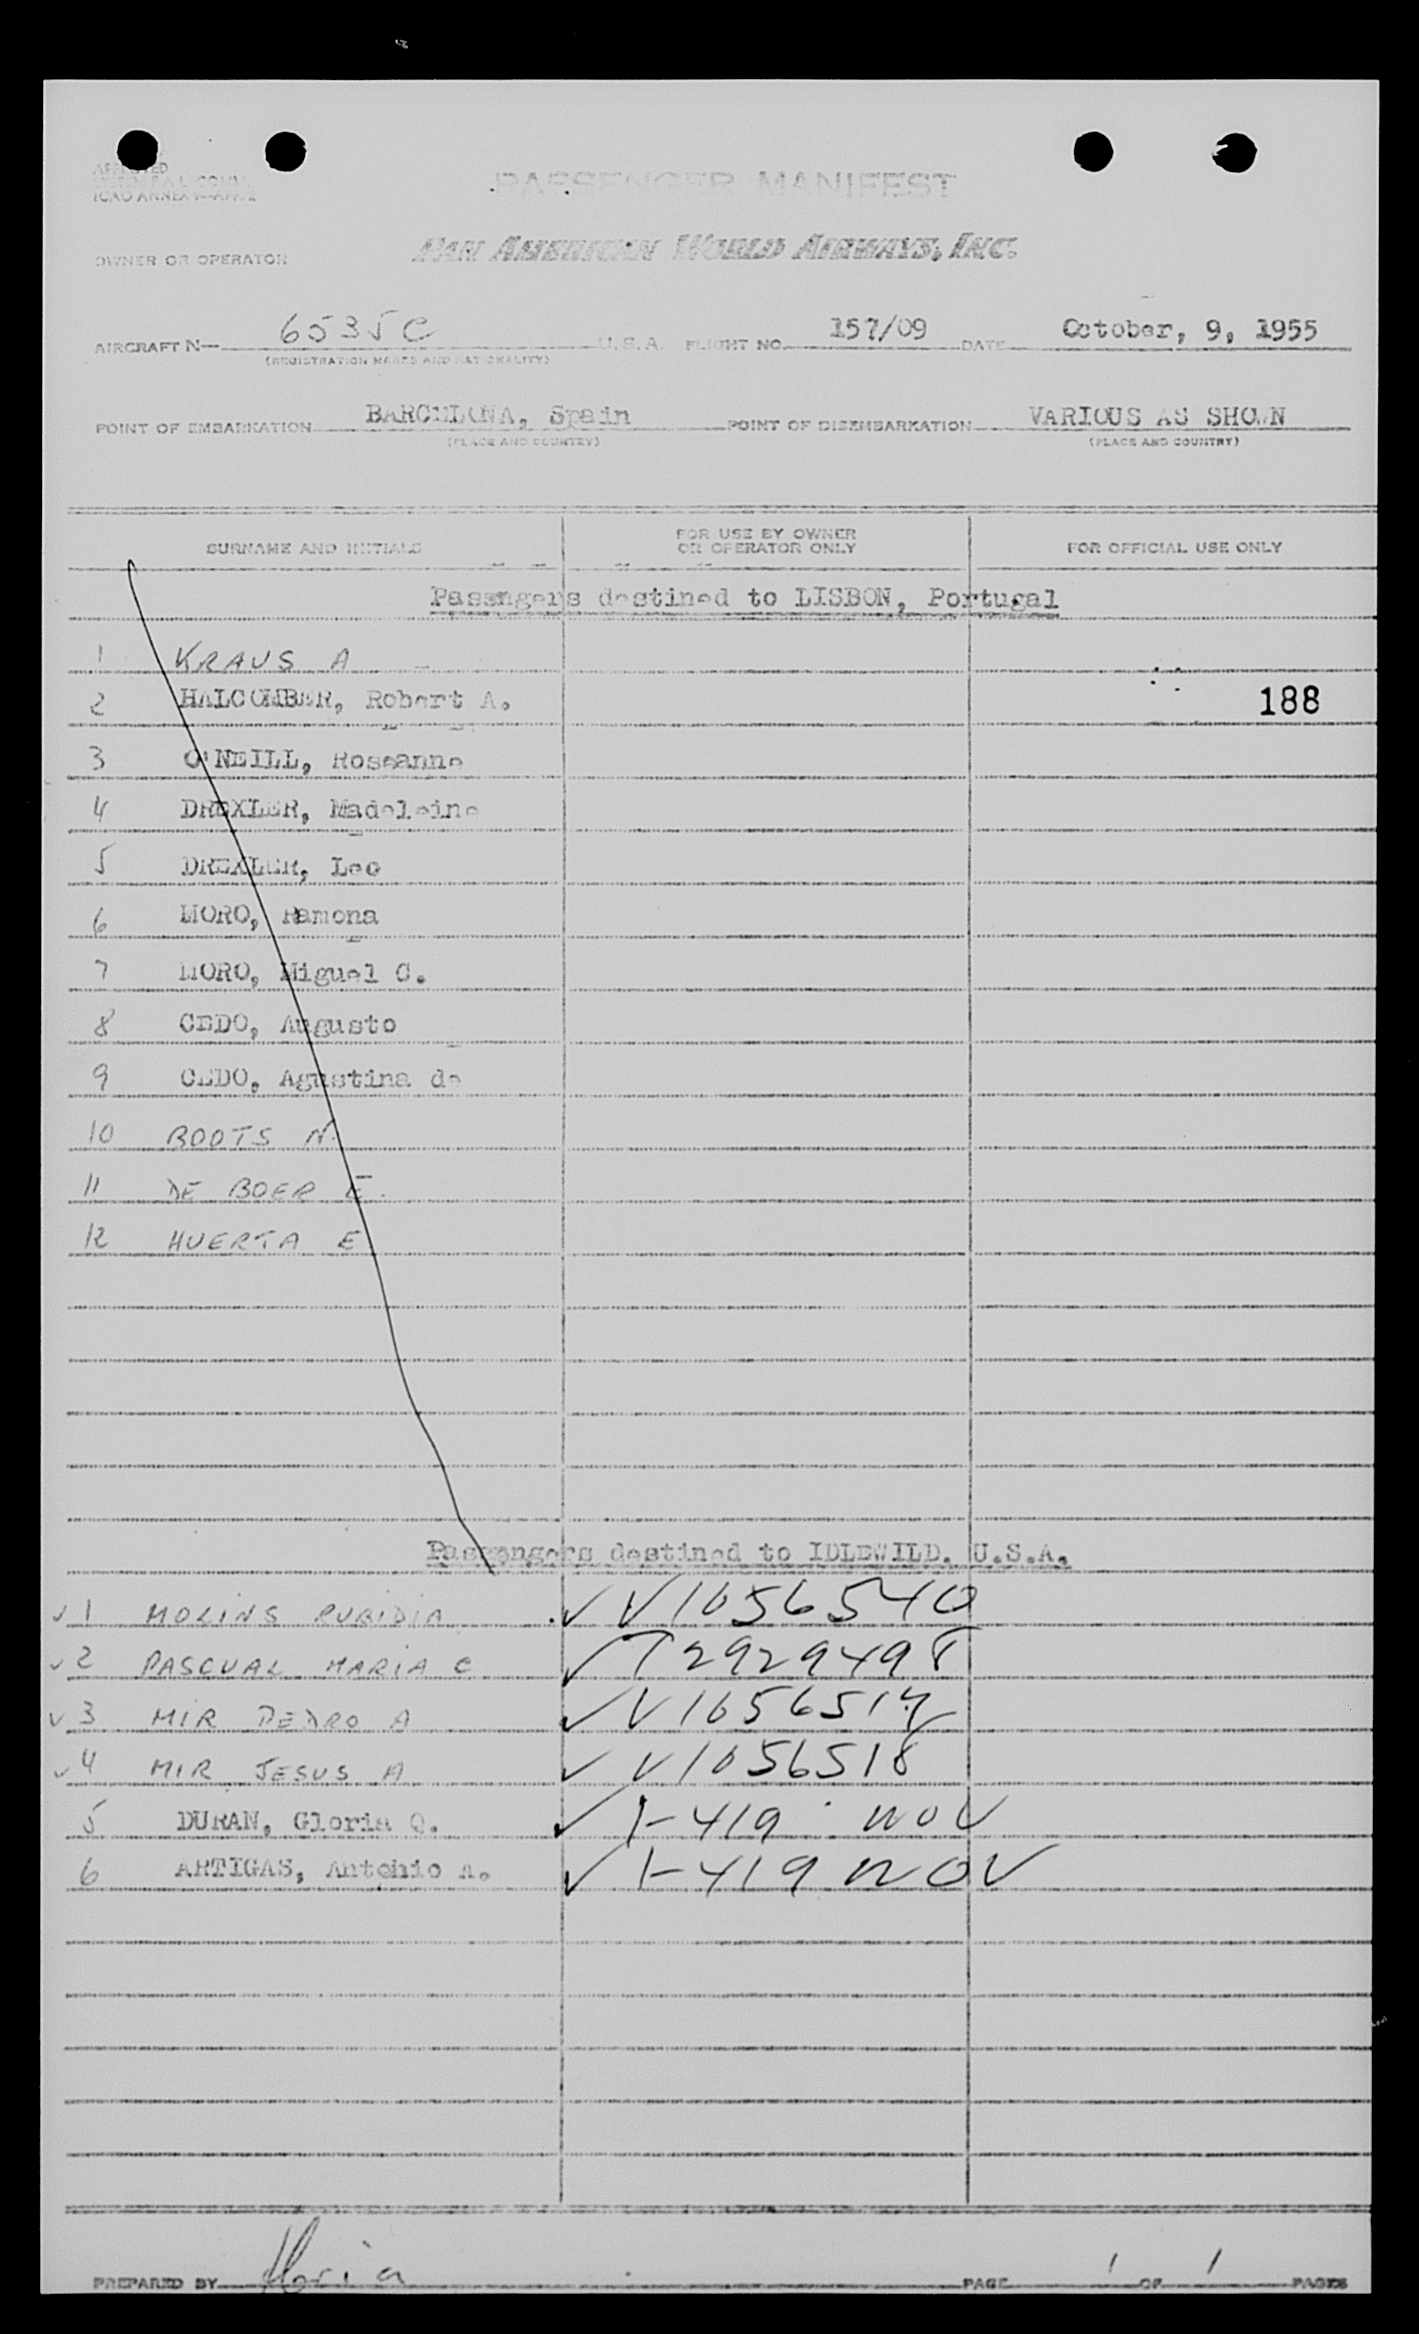 PASSENGER MANIFEST
ICAO ANNEX 9—APP. 2
OWNER OR OPERATOR PAN AMERICAN WORLD AIRWAYS, INC.
AIRCRAFT N— 6535C U.S.A. FLIGHT NO. 157/09 DATE October, 9, 1955
(REGISTRATION MARKS AND NATIONALITY)
POINT OF EMBARKATION BARCELONA, Spain POINT OF DISEMBARKATION VARIOUS AS SHOWN
(PLACE AND COUNTRY) (PLACE AND COUNTRY)
SURNAME AND INITIALS FOR USE BY OWNER OR OPERATOR ONLY FOR OFFICIAL USE ONLY
Passengers destined to LISBON, Portugal
1 KRAUS A
2 HALCOMBER, Robert A. 188
3 O'NEILL, Roseanne
4 DREXLER, Madeleine
5 DREXLER, Leo
6 MORO, Ramona
7 MORO, Miguel C.
8 CEDO, Augusto
9 CEDO, Agustina de
10 BOOTS N.
11 DE BOER E.
12 HUERTA E
Passengers destined to IDLEWILD. U.S.A.
✓ 1 MOLINS RUBIDIA ✓ V1656540
✓ 2 PASCUAL MARIA C ✓ T2929498
✓ 3 MIR PEDRO A ✓ V1656517
✓ 4 MIR JESUS A ✓ V1656518
5 DURAN, Gloria Q. ✓ 1-419 NOV
6 ARTIGAS, Antonio A. ✓ 1-419 NOV
PREPARED BY PAGE 1 OF 1 PAGES